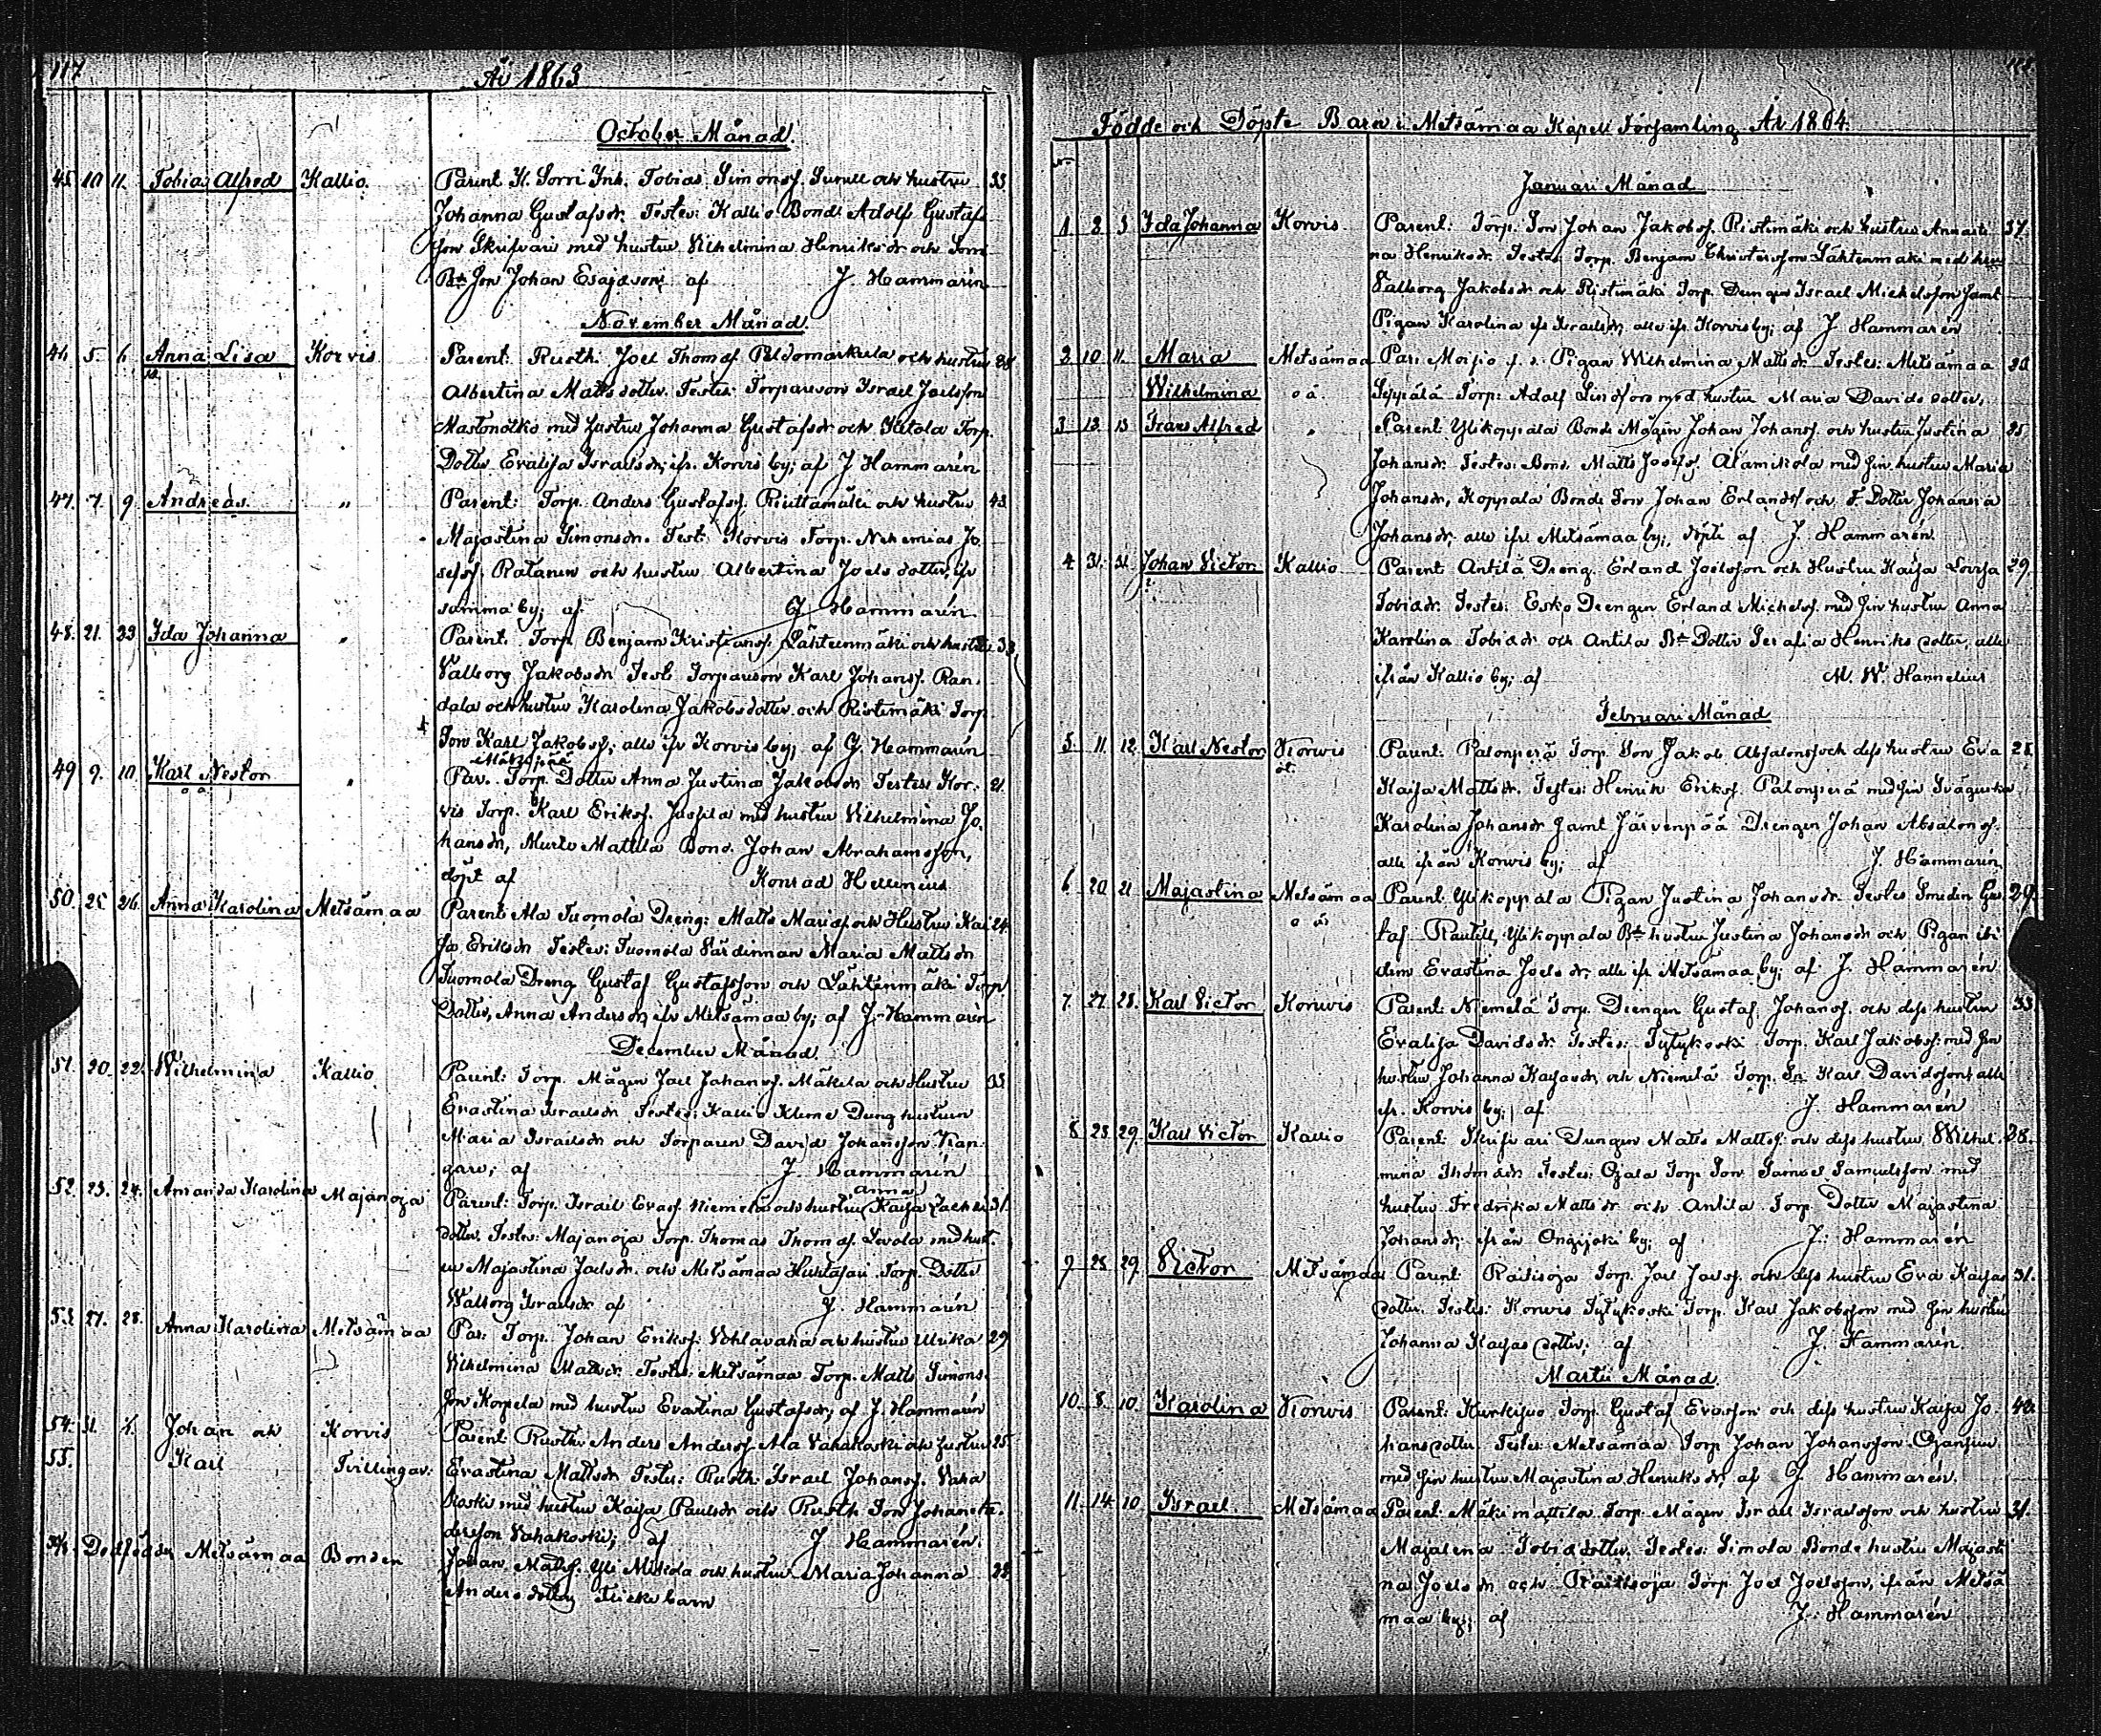 117
År 1863
October Månad
45. 10 11. Tobias Alfred Kallio. Parent K. Sorri Inh. Tobias Simonss. Surell och hustru 33
Johanna Gustafsdr. Testes: Kallio Bonde Adolf Gustafs
son Skrifvari med hustru Vilhelmina Henriksdr och Sorri
Bde Son Johan Esajasson; af J Hammarén
November Månad.
46. 5. 6. Anna Lisa Korvis Parent: Rusth. Joel Thomass. Peldomarkula och hustru 28
Albertina Matts dotter. Testes: Torparson Israel Joelsson
Mastonotko med hustru Johanna Gustafsdr och Ketola Torp.
Dotter Evalisa Israelsdr; ifr. Korvis by; af J Hammarén
47. 7. 9. Andreas. " Parent: Torp. Anders Gustafss. Riuttamäki och hustru 43
Majastina Simonsdr. Test: Korvis Torp. Nehemias Jo
sefss. Ratanen och hustru Albertina Joels dotter, ifr
samma by; af J Hammarén
48. 21. 23 Ida Johanna " Parent. Torp Benjam Kristianss. Lähteenmäki och hustru 33
Valborg Jakobsdr Test. Torparson Karl Johanss. Ran.
dala och hustru Karolina Jakobsdotter och Ristimäki Torp
Son Karl Jakobss; alle ifr Korvis by; af J. Hammarén
49 9. 10. Karl Nestor " Par. Torp. Dotter Anna Justina Jakobsdr Testes Kor. 21.
o ä
vis Torp. Karl Erikss. Jussila med hustru Vilhelmina Jo.
hansdr, Murto Mattila Bond. Johan Abrahamsson,
döpt af Konrad Hellenius
50. 25. 26. Anna Karolina Metsämaa Parent Ala Tuomola Dreng: Matts Mariass och Hustru Kai 24.
sa Eriksdr Testes: Tuomola Värdinnan Maria Mattsdr
Tuomola Dreng Gustaf Gustafsson och Lähtenmäki Torp
Dotter, Anna Andersdr ifr Metsämaa by; af J. Hammarén
December Månad.
51. 20. 22. Wilhelmina Kallio Parent: Torp. Mågen Joel Johanss. Mäkela och Hustru 33.
Evastina Israelsdr Testes: Kallio Kleme Dreng hustrun
Maria Israelsdr och Torparen David Johansson Kan
gare; af J. Hammarén
52. 23. 24. Amanda Karolina Majanoja Parent: Torp. Israel Evass. Niemelä och hustru Kaisa Zachri 31.
Anna
dotter. Testes: Majanoja Torp. Thomas Thomass. Levola med hust.
ru Majastina Joelsdr. och Metsämaa Huhtasari Torp. Dotter
Walborg Israelsdr af J. Hammarén
53. 27. 28. Anna Karolina Metsämaa Par: Torp. Johan Erikss. Vohlavaha och hustru Ulrika 29
Vilhelmina Mattsdr. Testes: Metsämaa Torp. Matts Simons.
son Korpela med hustru Evastina Gustafsdr; af J. Hammarén
54. 31. 1. Johan och Korvis Parent Rusth. Anders Anderss. Ala Vahakoski och hustru 25.
55. Karl Tvillingar. Evastina Mattsdr Testes: Rusth. Israel Johanss. Vaha
koski med hustru Kaisa Paulsdr och Rusth Son Johan An.
dersson Vahakoski; af J Hammarén.
Dödfödde Metsämaa Bonden Johan Mattss. Yli Mikola och hustru Maria Johanna 28
Anders dotter, Flickebarn
Födde och Döpte Barn i Metsämaa Kapell Församling År 1864.
Januari Månad
1. 2. 3. Ida Johanna Korvis Parent: Torp. Son Johan Jakobss. Ristimäki och hustru Annasti 37.
na Henriksdr. Testes Torp. Benjam Christersson Lähtenmäki med hru
Valborg Jakobsdr och Ristimäki Torp Drengen Israel Michelsson samt
Pigan Karolina Israelsdr, alle ifr. Korvis by; af J Hammarén
2. 10. 11. Maria Metsämaa Par: Moisio Pigan Wilhelmina Mattsdr. Testes: Metsämaa 20
Wilhelmina o ä. Seppälä Torp: Adolf Lindfors med hustru Maria Davids dotter,
3. 13. 15 Frans Alfred " Parent Ylikoppala Bonde Mågen Johan Johanss. och hustru Justina 25
Johansdr. Testes: Bond. Matts Josefss. Alamikola med sin hustru Maria
Johansdr, Koppala Bonde Son Johan Erlandss och F. Dotter Johanna
Johansdr; alle ifr Metsämaa by; döpte af J. Hammarén
4. 31. 31. Johan Victor Kallio Parent Antila Dreng. Erland Joelsson och Hustru Kaisa Lovisa 29.
Tobiadr. Testes: Esko Drengen Erland Michelss. med sin hustru Anna
Karolina Tobiasdr och Antila Bde Dotter Serafia Henriks dotter, alle
ifrån Kallio by; af M. W. Hannelius
Februari Månad
5. 11. 12. Karl Nestor Korvis Parent: Palonperä Torp. Son Jakob Absalonss och dess hustru Eva 28.
Kaisa Mattsdr. Testes: Henrik Erikss. Palonperä med sin Svägerska
Karolina Johansdr samt Järvenpää Drengen Johan Absalonss.
alle ifrån Korvis by; af J. Hammarén
6. 20. 21. Majastina Metsämaa Parent: Ylikoppala Pigan Justina Johansdr. Testes Smeden Gus 29.
o ä.
taf Rautell, Ylikoppala Bde hustru Justina Johansdr och Pigan ibi
dem Evastina Joelsdr; alle ifr Metsämaa by; af J. Hammarén
7. 27. 28. Karl Victor Korvis Parent Niemelä Torp. Drengen Gustaf Johanss. och dess hustru 33.
Evalisa Davidsdr. Testes: Tytykoski Torp. Karl Jakobss: med sin
hustru Johanna Kaisasdr; och Niemelä Torp. Sn Karl Davidsson; alle
ifr. Korvis by; af J. Hammarén
8. 28. 29. Karl Victor Kallio Parent: Skrifvari Drengen Matts Mattss: och dess hustru Wilhel. 28.
mina Thomasdr. Testes: Ojala Torp Son Samuel Samuelsson med
hustru Fredrika Mattsdr och Antila Torp Dotter Majastina
Johansdr; ifrån Onzijoki by; af J. Hammarén
9. 28. 29. Victor Metsämaa Parent: Raitisoja Torp. Joel Joelss. och dess hustru Eva Kaisas 31.
dotter. Testes: Korvis Tytykoski Torp. Karl Jakobsson med sin hustru
Johanna Kaisas dotter: af J. Hammarén.
Martii Månad
10. 8. 10. Karolina Korvis Parent: Kurkisuo Torp. Gustaf Evasson och dess hustru Kaisa Jo. 42.
hansdotter Testes Metsämaa Torp Johan Johansson Ojansuu
med sin hustru Majastina Henriksdr; af J. Hammarén.
11. 14. 10. Israel. Metsämaa Parent: Mäkimattila Torp. Mågen Israel Israelsson och hustru 31.
Majalena Tobiadotter. Testes: Simola Bonde hustru Majasti
na Joelsdr och Raitisoja Torp. Joel Joelsson, ifrån Metsä
maa by; af J. Hammarén